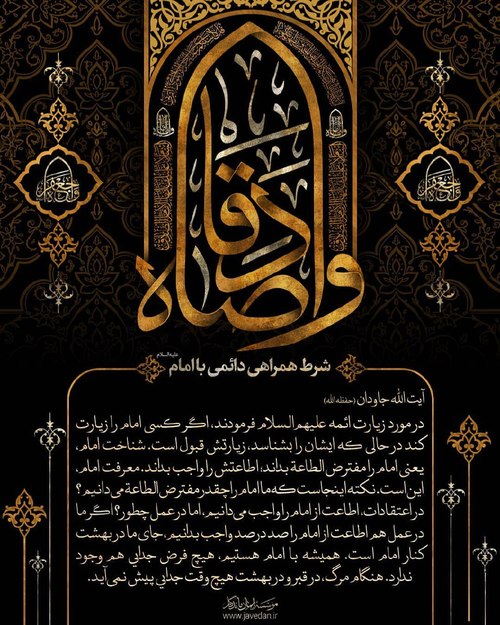 وا صادقاه
شرط همراهی دائمی با امام علیه‌السلام
آیت الله جاودان (حفظه الله)
در مورد زیارت ائمه علیهم السلام فرمودند، اگر کسی امام را زیارت
کند در حالی که ایشان را بشناسد، زیارتش قبول است. شناخت امام،
یعنی امام را مفترض الطاعة بداند، اطاعتش را واجب بداند. معرفت امام،
این است. نکته اینجاست که ما امام را چقدر مفترض الطاعة می دانیم؟
در اعتقادات، اطاعت از امام را واجب می دانیم. اما در عمل چطور؟ اگر ما
در عمل هم اطاعت از امام را صد در صد واجب بدانیم، جای ما در بهشت
کنار امام است. همیشه با امام هستیم، هیچ فرض جدایی هم وجود
ندارد. هنگام مرگ، در قبر و در بهشت هیچ وقت جدایی پیش نمی آید.
www.javedan.ir